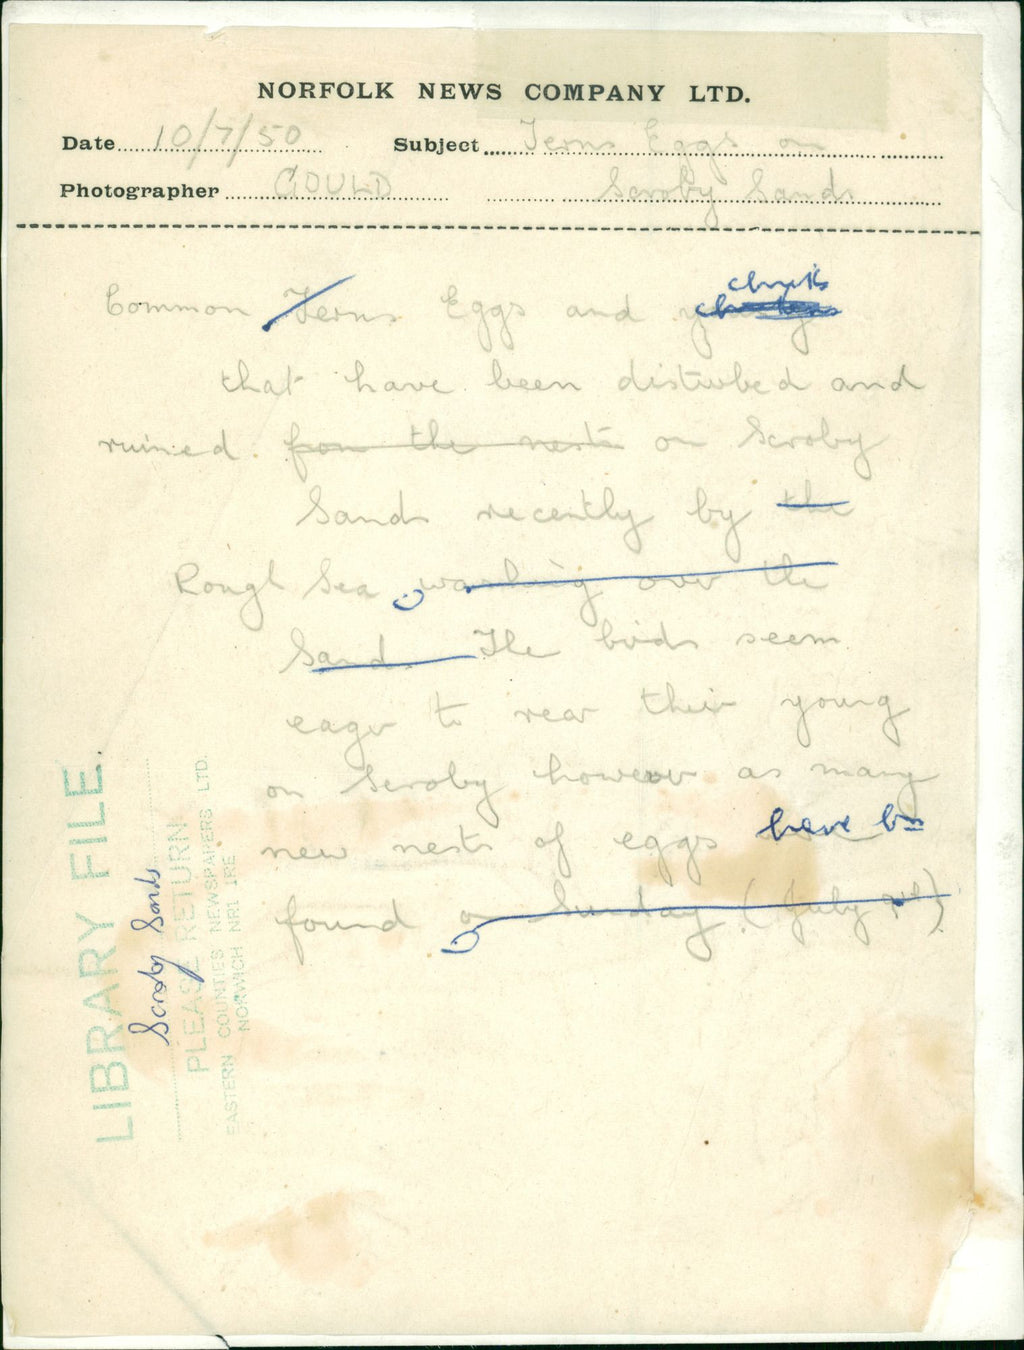 NORFOLK NEWS COMPANY LTD.
Date 10/7/50 Subject Terns Eggs on
Photographer GOULD Scroby Sands
chicks
Common Terns Eggs and
that have been disturbed and
ruined. from the nests on Scroby
Sands recently by the
Rough Sea washing over the
Sand. The birds seem
eager to rear their young
on Scroby however as many
new nests of eggs have bn
found on Sunday (July
LIBRARY FILE.
Scroby Sands
PLEASE RETURN
EASTERN COUNTIES NEWSPAPERS LTD.
NORWICH NR1 1RE